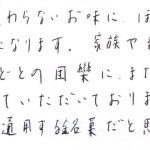 わらないお味に、ほ
になります。家族や
どとの団欒に、また
ていただいておりま
通用する銘菓だと思